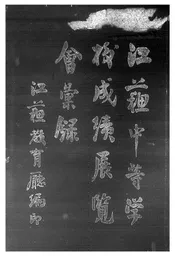 江蘇中等学
校成績展覽
會彙録
江蘇教育廳編印